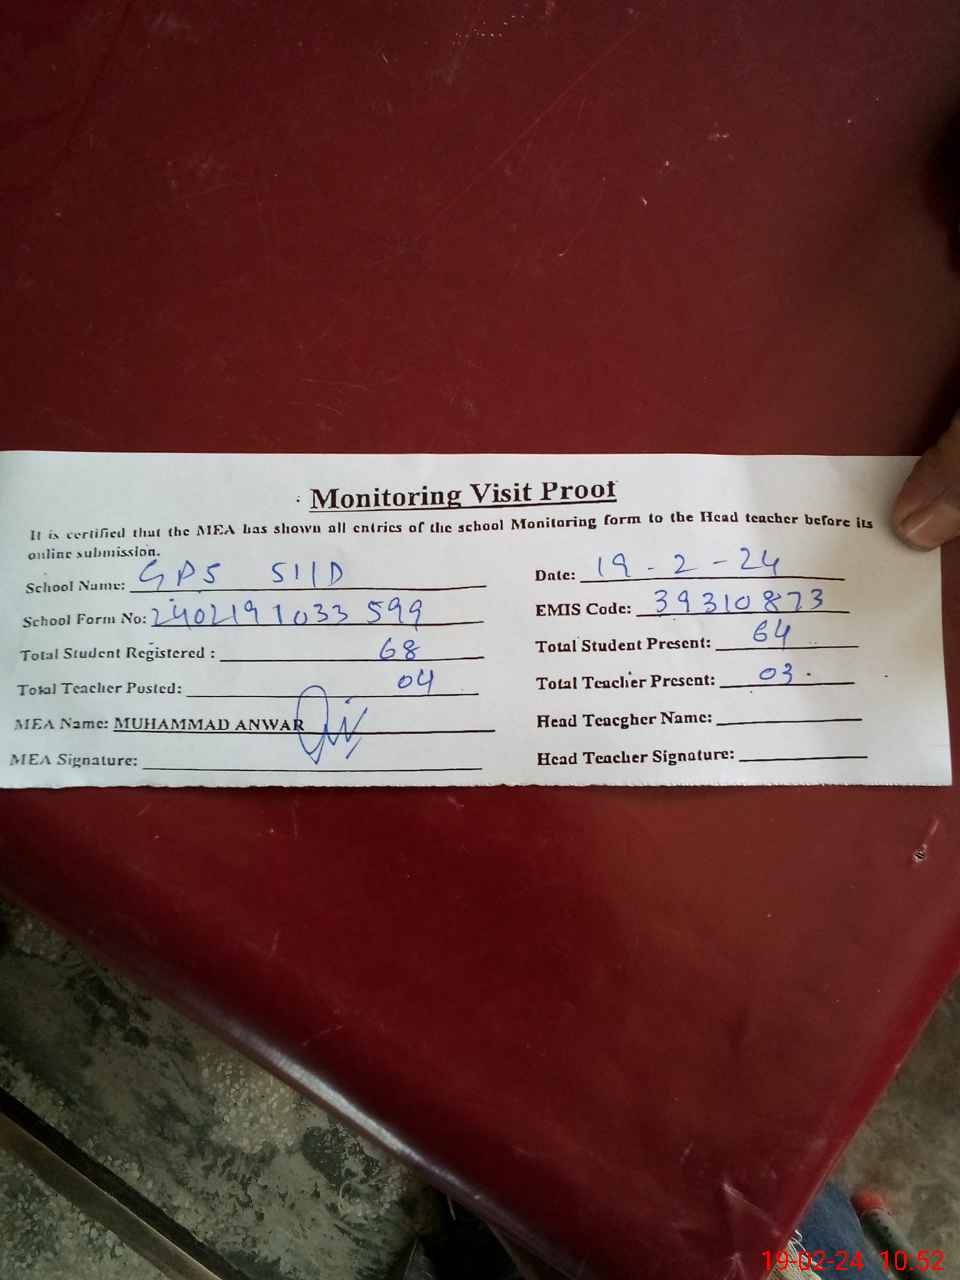 Monitoring Visit Proof
It is certified that the MEA has shown all entries of the school Monitoring form to the Head teacher before its
online submission.
School Name: GPS 511D Date: 19-2-24
School Form No: 2402191033599 EMIS Code: 39310873
Total Student Registered : 68 Total Student Present: 64
Total Teacher Posted: 04 Total Teacher Present: 03.
MEA Name: MUHAMMAD ANWAR Head Teacgher Name:
MEA Signature: Head Teacher Signature:
19-02-24 10:52